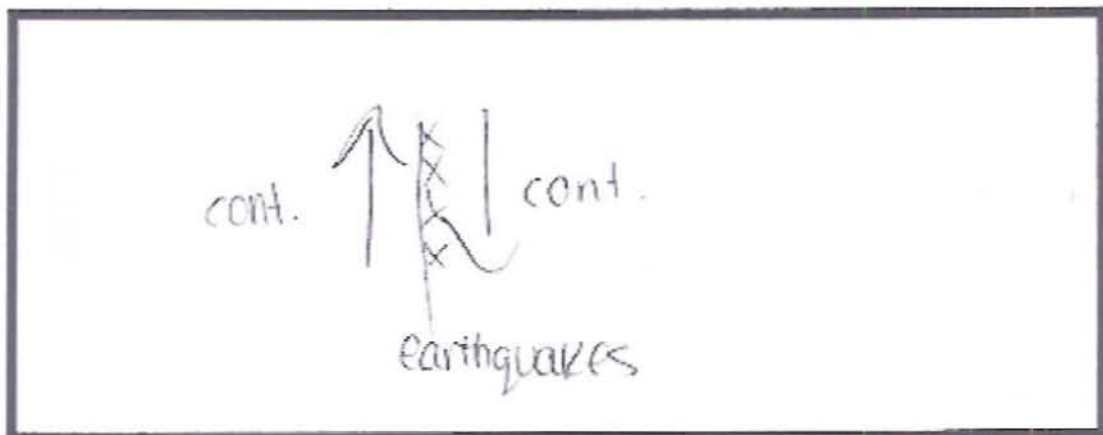 cont. cont.
earthquakes